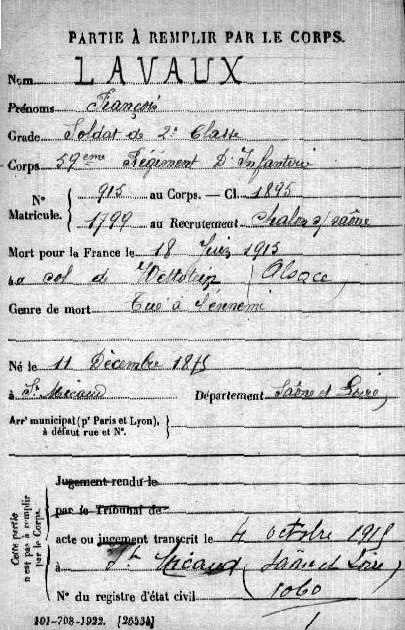 PARTIE À REMPLIR PAR LE CORPS.
Nom LAVAUX
Prénoms François
Grade Soldat de 2e Classe
Corps 59eme Régiment D'Infanterie
N° Matricule. { 915 au Corps. — Cl. 1895
1799 au Recrutement Chalon s/ Saône
Mort pour la France le 18 Juin 1915
a col de (Alsace)
Genre de mort Tué à l'ennemi
Né le 11 Décembre 1875
à St Micaud Département Saône et Loire
Arrt municipal (pr Paris et Lyon), à défaut rue et N°. }
Cette partie n'est pas à remplir par le Corps.
Jugement rendu le
par le Tribunal de
acte ou jugement transcrit le 4 octobre 1915
à St Micaud (Saône et Loire)
N° du registre d'état civil 1060
101-708-1922. [26534]